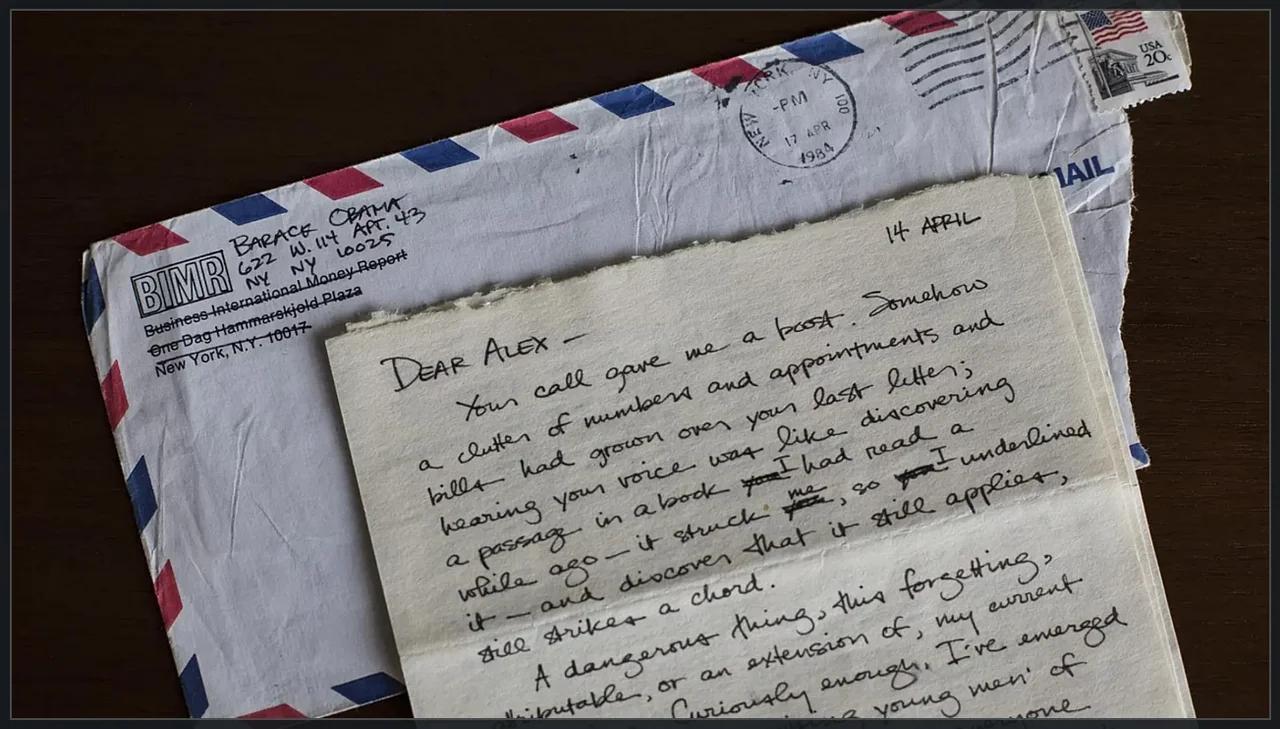 NEW YORK, NY 100
-PM
17 APR
1984
USA
20c
MAIL
BARACK OBAMA
622 W. 114 APT. 43
NY NY 10025
BIMR
Business International Money Report
One Dag Hammarskjold Plaza
New York, N.Y. 10017
14 APRIL
DEAR ALEX —
Your call gave me a boost. Somehow
a clutter of numbers and appointments and
bills had grown over your last letter;
hearing your voice was like discovering
a passage in a book you I had read a
while ago — it struck me, so you I underlined
it — and discover that it still applies,
still strikes a chord.
A dangerous thing, this forgetting,
attributable, or an extension of, my current
Curiously enough, I've emerged
young men' of